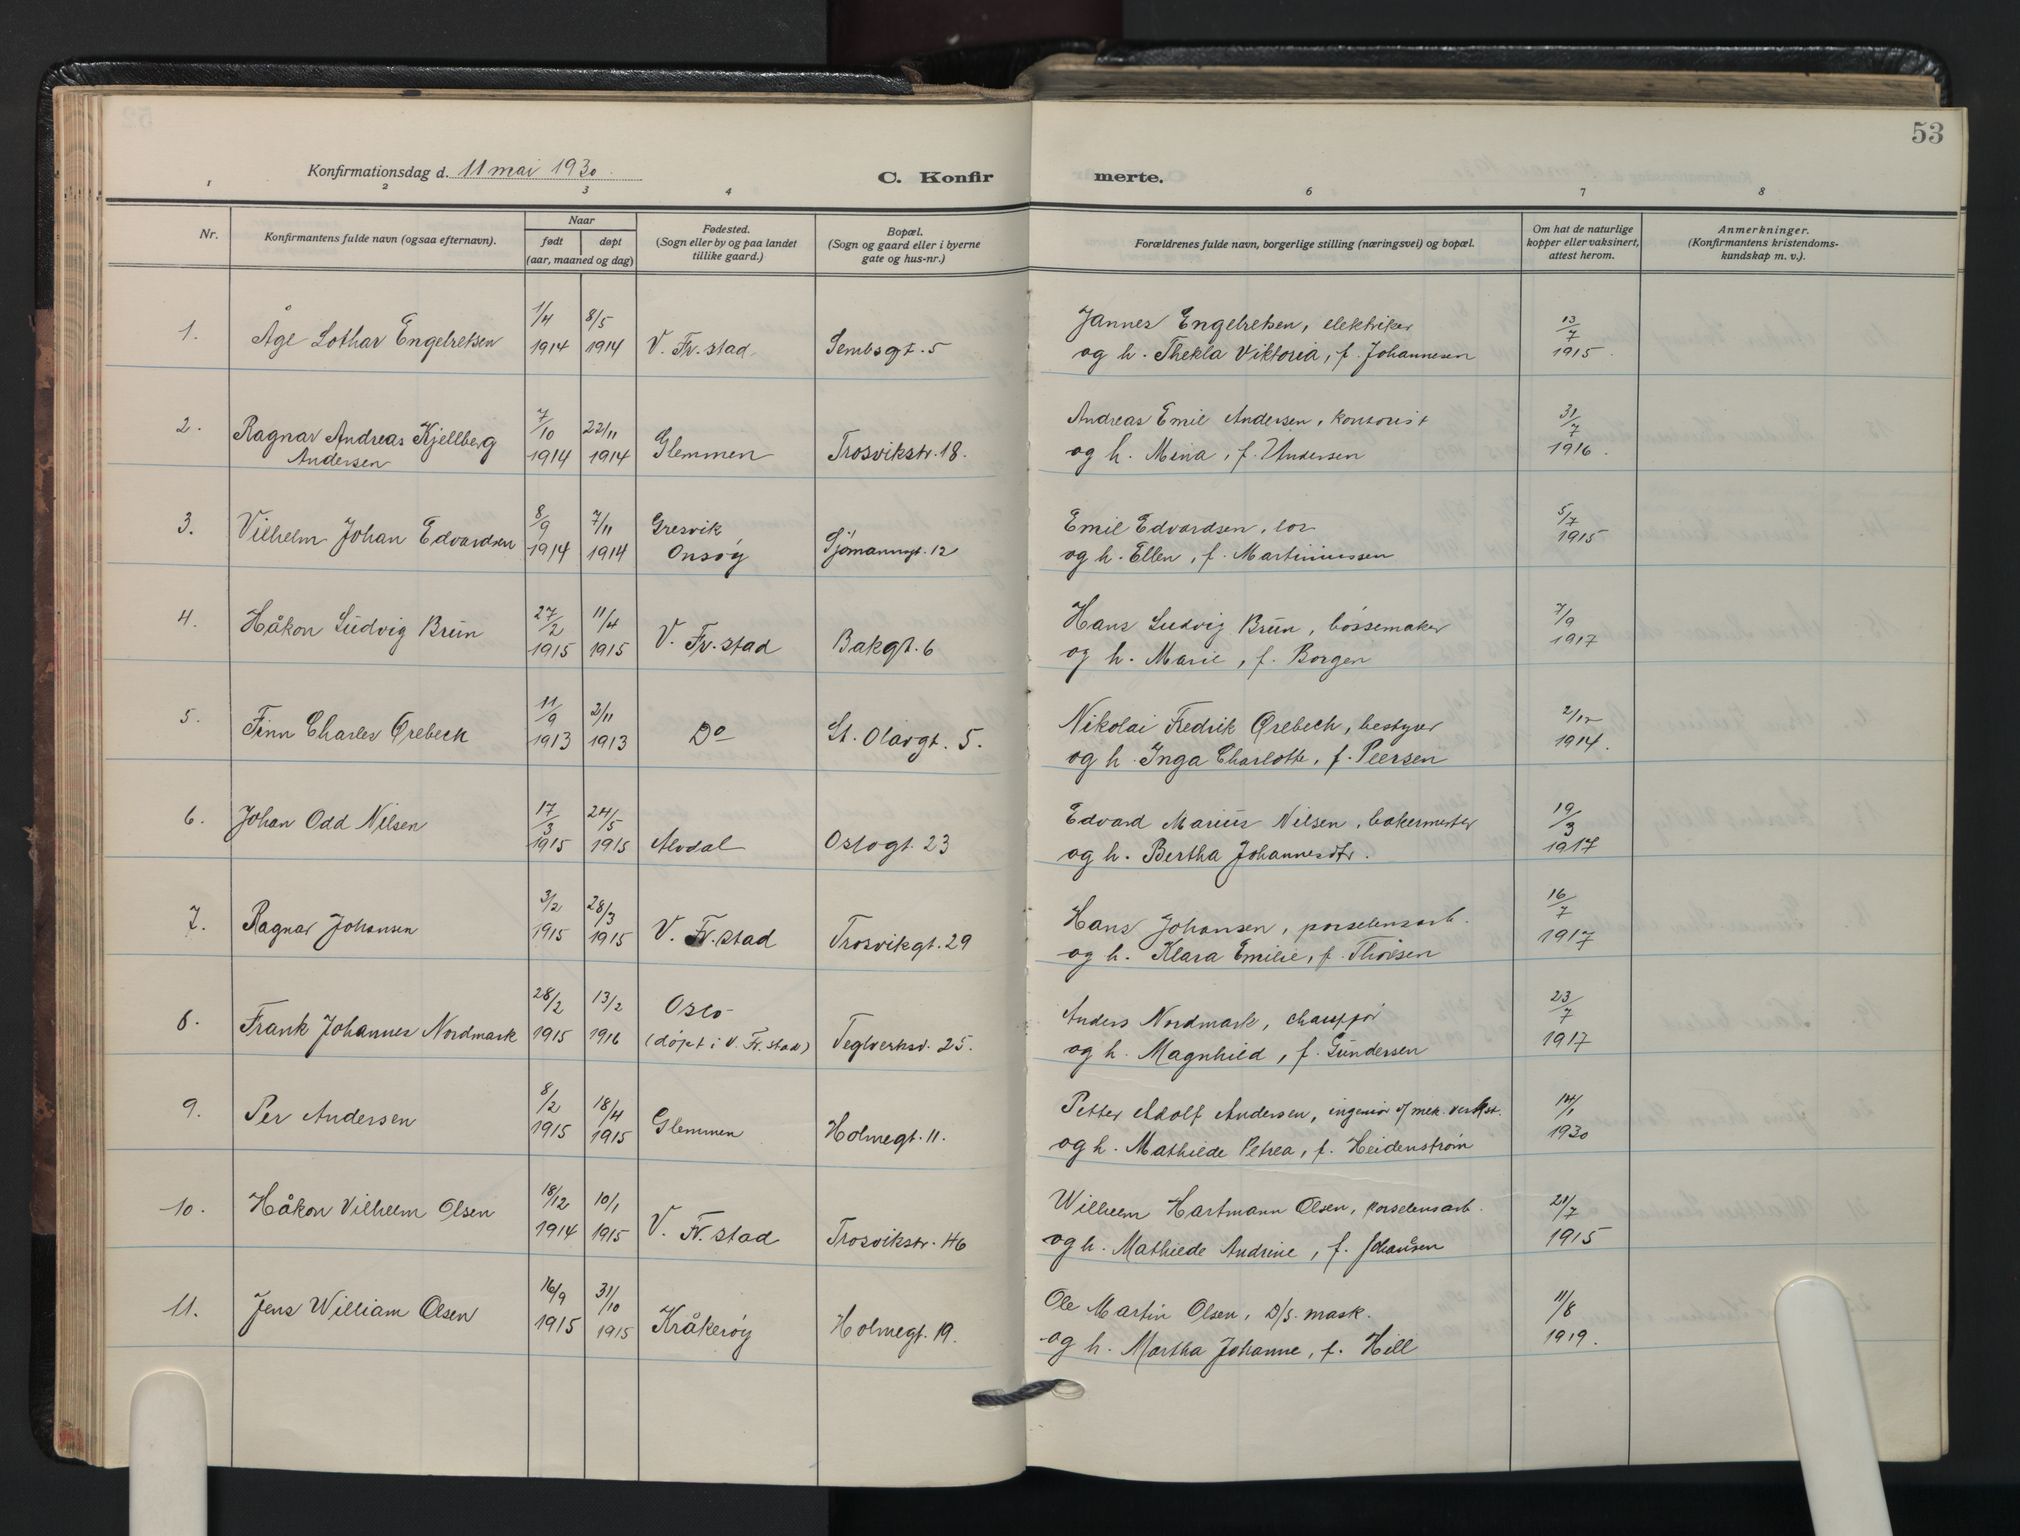 53
Konfirmationsdag d. 11 mai 1930.
C. Konfir merte.
1 2 3 4 6 7 8
Nr.
Konfirmantens fulde navn (ogsaa efternavn).
Naar
født døpt
(aar, maaned og dag)
Fødested.
(Sogn eller by og paa landet
tillike gaard.)
Bopæl.
(Sogn og gaard eller i byerne
gate og hus-nr.)
Forældrenes fulde navn, borgerlige stilling (næringsvei) og bopæl.
Om hat de naturlige
kopper eller vaksinert,
attest herom.
Anmerkninger.
(Konfirmantens kristendoms-
kundskap m. v.).
1. Åge Lothar Engelretsen 1/4 1914 8/5 1914 V. Fr.stad Sembsgt. 5
Jannes Engelretsen, elektriker 13/7
og h. Thekla Viktoria, f. Johannesen 1915.
2. Ragnar Andreas Kjellberg 7/10 1914 22/11 1914 Glemmen Trosvikstr. 18.
Andersen
Andreas Emil Andersen, kontorist 31/7
og h. Mina, f. Andersen 1916.
3. Vilhelm Johan Edvardsen 8/9 1914 7/11 1914 Gresvik
Onsøy Sjømannsgt. 12
Emil Edvardsen, los 5/7
og h. Ellen, f. Martiniussen 1915
4. Håkon Ludvig Brun 27/2 1915 11/4 1915 V. Fr.stad Bakgt. 6
Hans Ludvig Brun, bøssemaker 7/9
og h. Marie, f. Borgen 1917
5. Finn Charles Ørebech 11/9 1913 2/11 1913 Do St. Olavgt. 5.
Nikolai Fredrik Ørebech, bestyrer 2/12
og h. Inga Charlotte, f. Peersen 1914.
6. Johan Odd Nilsen 17/3 1915 24/5 1915 Alvdal Oslogt. 23
Edvard Marius Nilsen, bakermester 19/3
og h. Bertha Johannesdtr. 1917
7. Ragnar Johansen 3/2 1915 28/3 1915 V. Fr.stad Trosvikgt. 29
Hans Johansen, porselensarb. 16/7
og h. Klara Emilie, f. Thoresen 1917
8. Frank Johannes Nordmark 28/2 1915 13/2 1916 Oslo
(døpt i V. Fr.stad) Teglverksv. 25.
Anders Nordmark, chauffør 23/7
og h. Magnhild, f. Gundersen 1917
9. Per Andersen 8/2 1915 18/4 1915 Glemmen Holmegt. 11.
Petter Adolf Andersen, ingeniør v/ mek. verkst. 14/1
og h. Mathilde Petrea, f. Heidenstrøm 1930
10. Håkon Vilhelm Olsen 18/12 1914 10/1 1915 V. Fr.stad Trosvikstr. 46
Wilhelm Hartmann Olsen, porselensarb. 21/7
og h. Mathilde Andrine, f. Johansen 1915
11. Jens William Olsen 16/9 1915 31/10 1915 Kråkerøy Holmegt. 19.
Ole Martin Olsen, D/S. mask. 11/8
og h. Martha Johanne, f. Hill 1919.